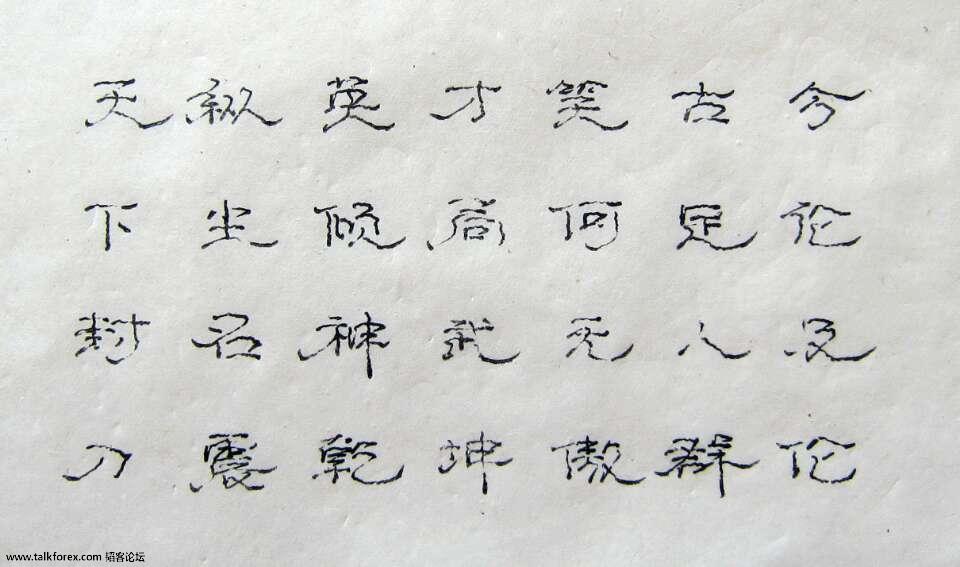 天纵英才笑古今
下尘倾局何足论
封名神武无人及
刀震乾坤傲群伦
www.talkforex.com 韬客论坛